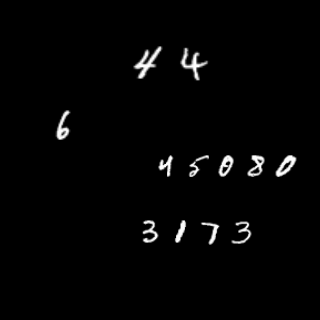 44
6
45080
3173